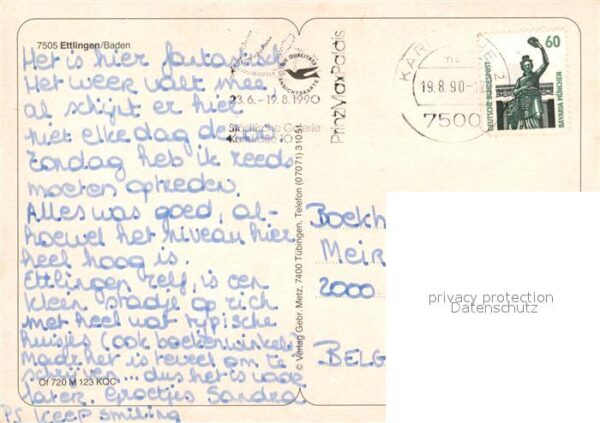 7505 Ettlingen/Baden
Het is hier fantastisch
Het weer valt mee
al schijnt er hier
niet elke dag de zon.
Zondag heb ik reeds
moeten optreden.
Alles was goed, al-
hoewel het niveau hier
heel hoog is.
Ettlingen zelf, is een
klein stadje op zich
met heel wat typische
huisjes (ook boekenwinkels)
Maar het is teveel om te
schrijven... dus het is voor
later. Groetjes Sandra
PS Keep smiling
Of 720 M 123 KQC
DIE QUALITÄTS
ANSICHTSKARTE
23.6.-19.8.1990
Städtische Galerie
Karlstraße 10
PrinzMaxPalais
© Verlag Gebr. Metz, 7400 Tübingen, Telefon (07071) 31051
KARLSRUHE
19.8.90
7500
60
DEUTSCHE BUNDESPOST
BAVARIA MÜNCHEN
Boekh
Meir
2000
BELG
privacy protection
Datenschutz